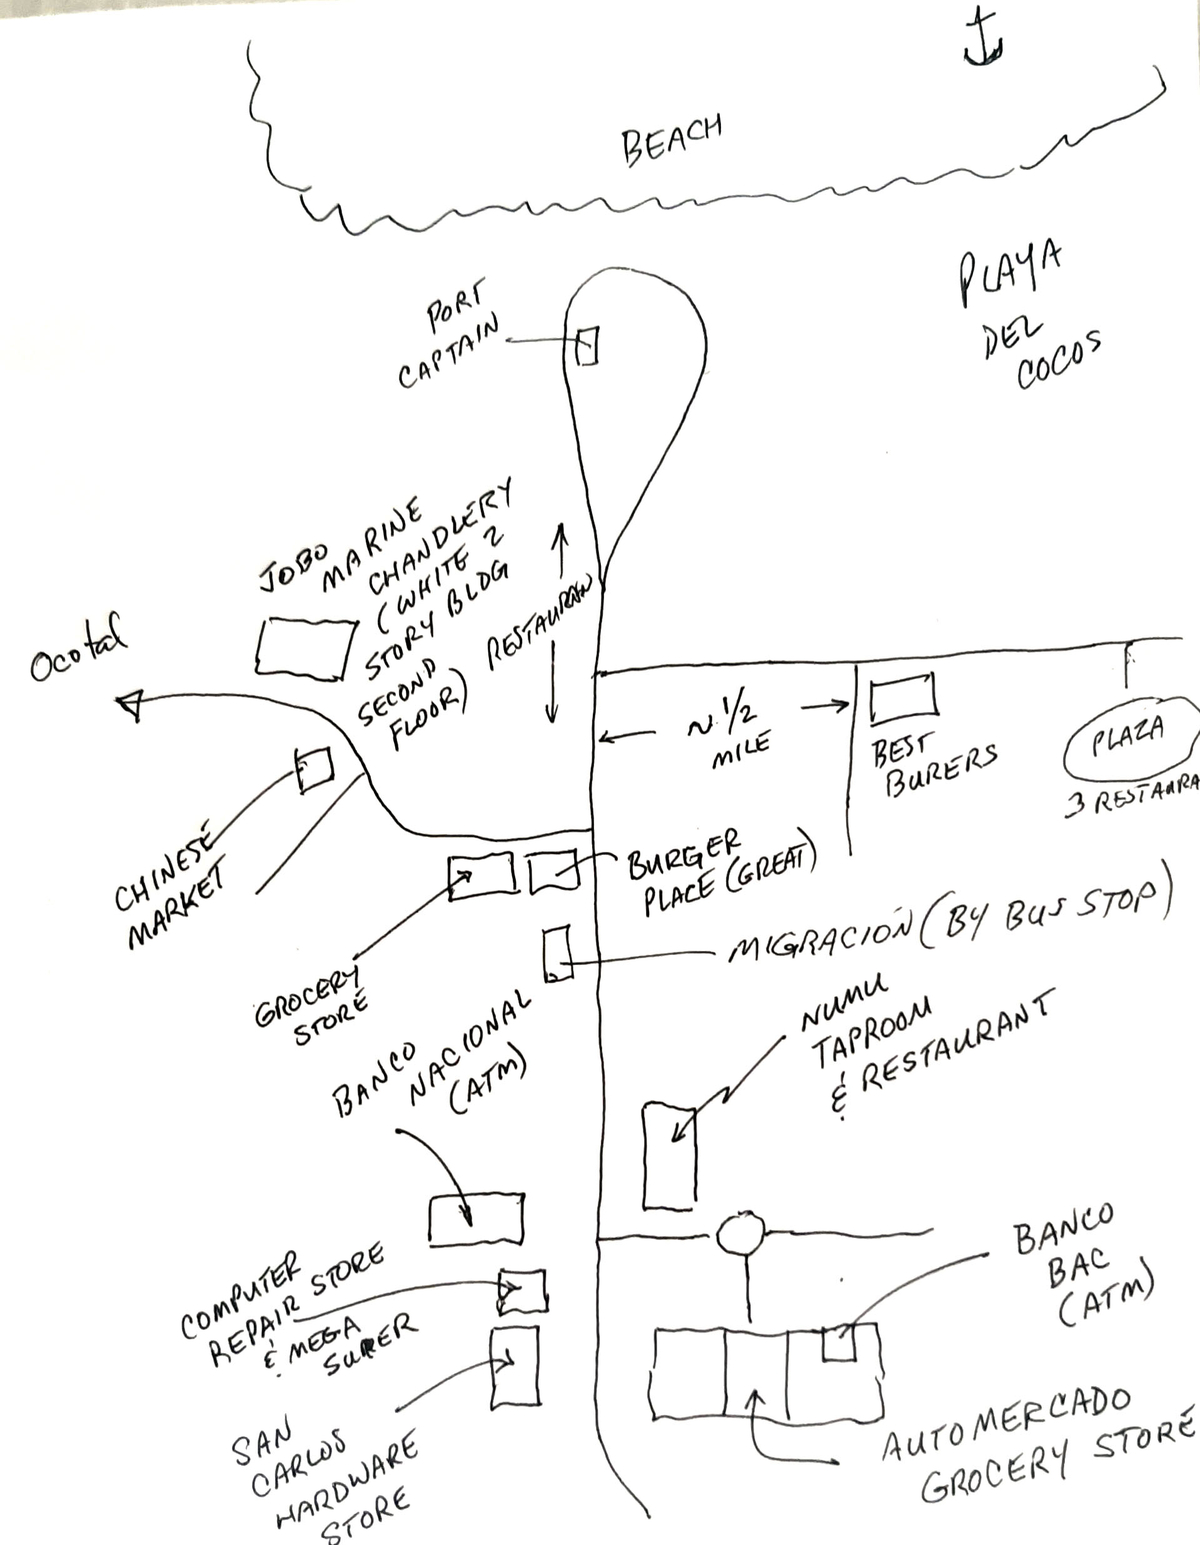 BEACH
PLAYA
DEL
COCOS
PORT
CAPTAIN
JOBO
MARINE
CHANDLERY
(WHITE 2
STORY BLDG
SECOND
FLOOR)
RESTAURAN
Ocotal
N 1/2
MILE
BEST
BURERS
PLAZA
3 RESTAURA
CHINESE
MARKET
BURGER
PLACE (GREAT)
GROCERY
STORE
MIGRACIÓN (BY BUS STOP)
BANCO
NACIONAL
(ATM)
NUMU
TAPROOM
& RESTAURANT
COMPUTER
REPAIR STORE
& MEGA
SUPER
BANCO
BAC
(ATM)
SAN
CARLOS
HARDWARE
STORE
AUTOMERCADO
GROCERY STORE